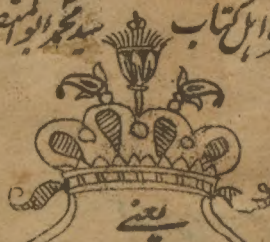 و اہل کتاب سید محمد ابو المنصو
یعنی